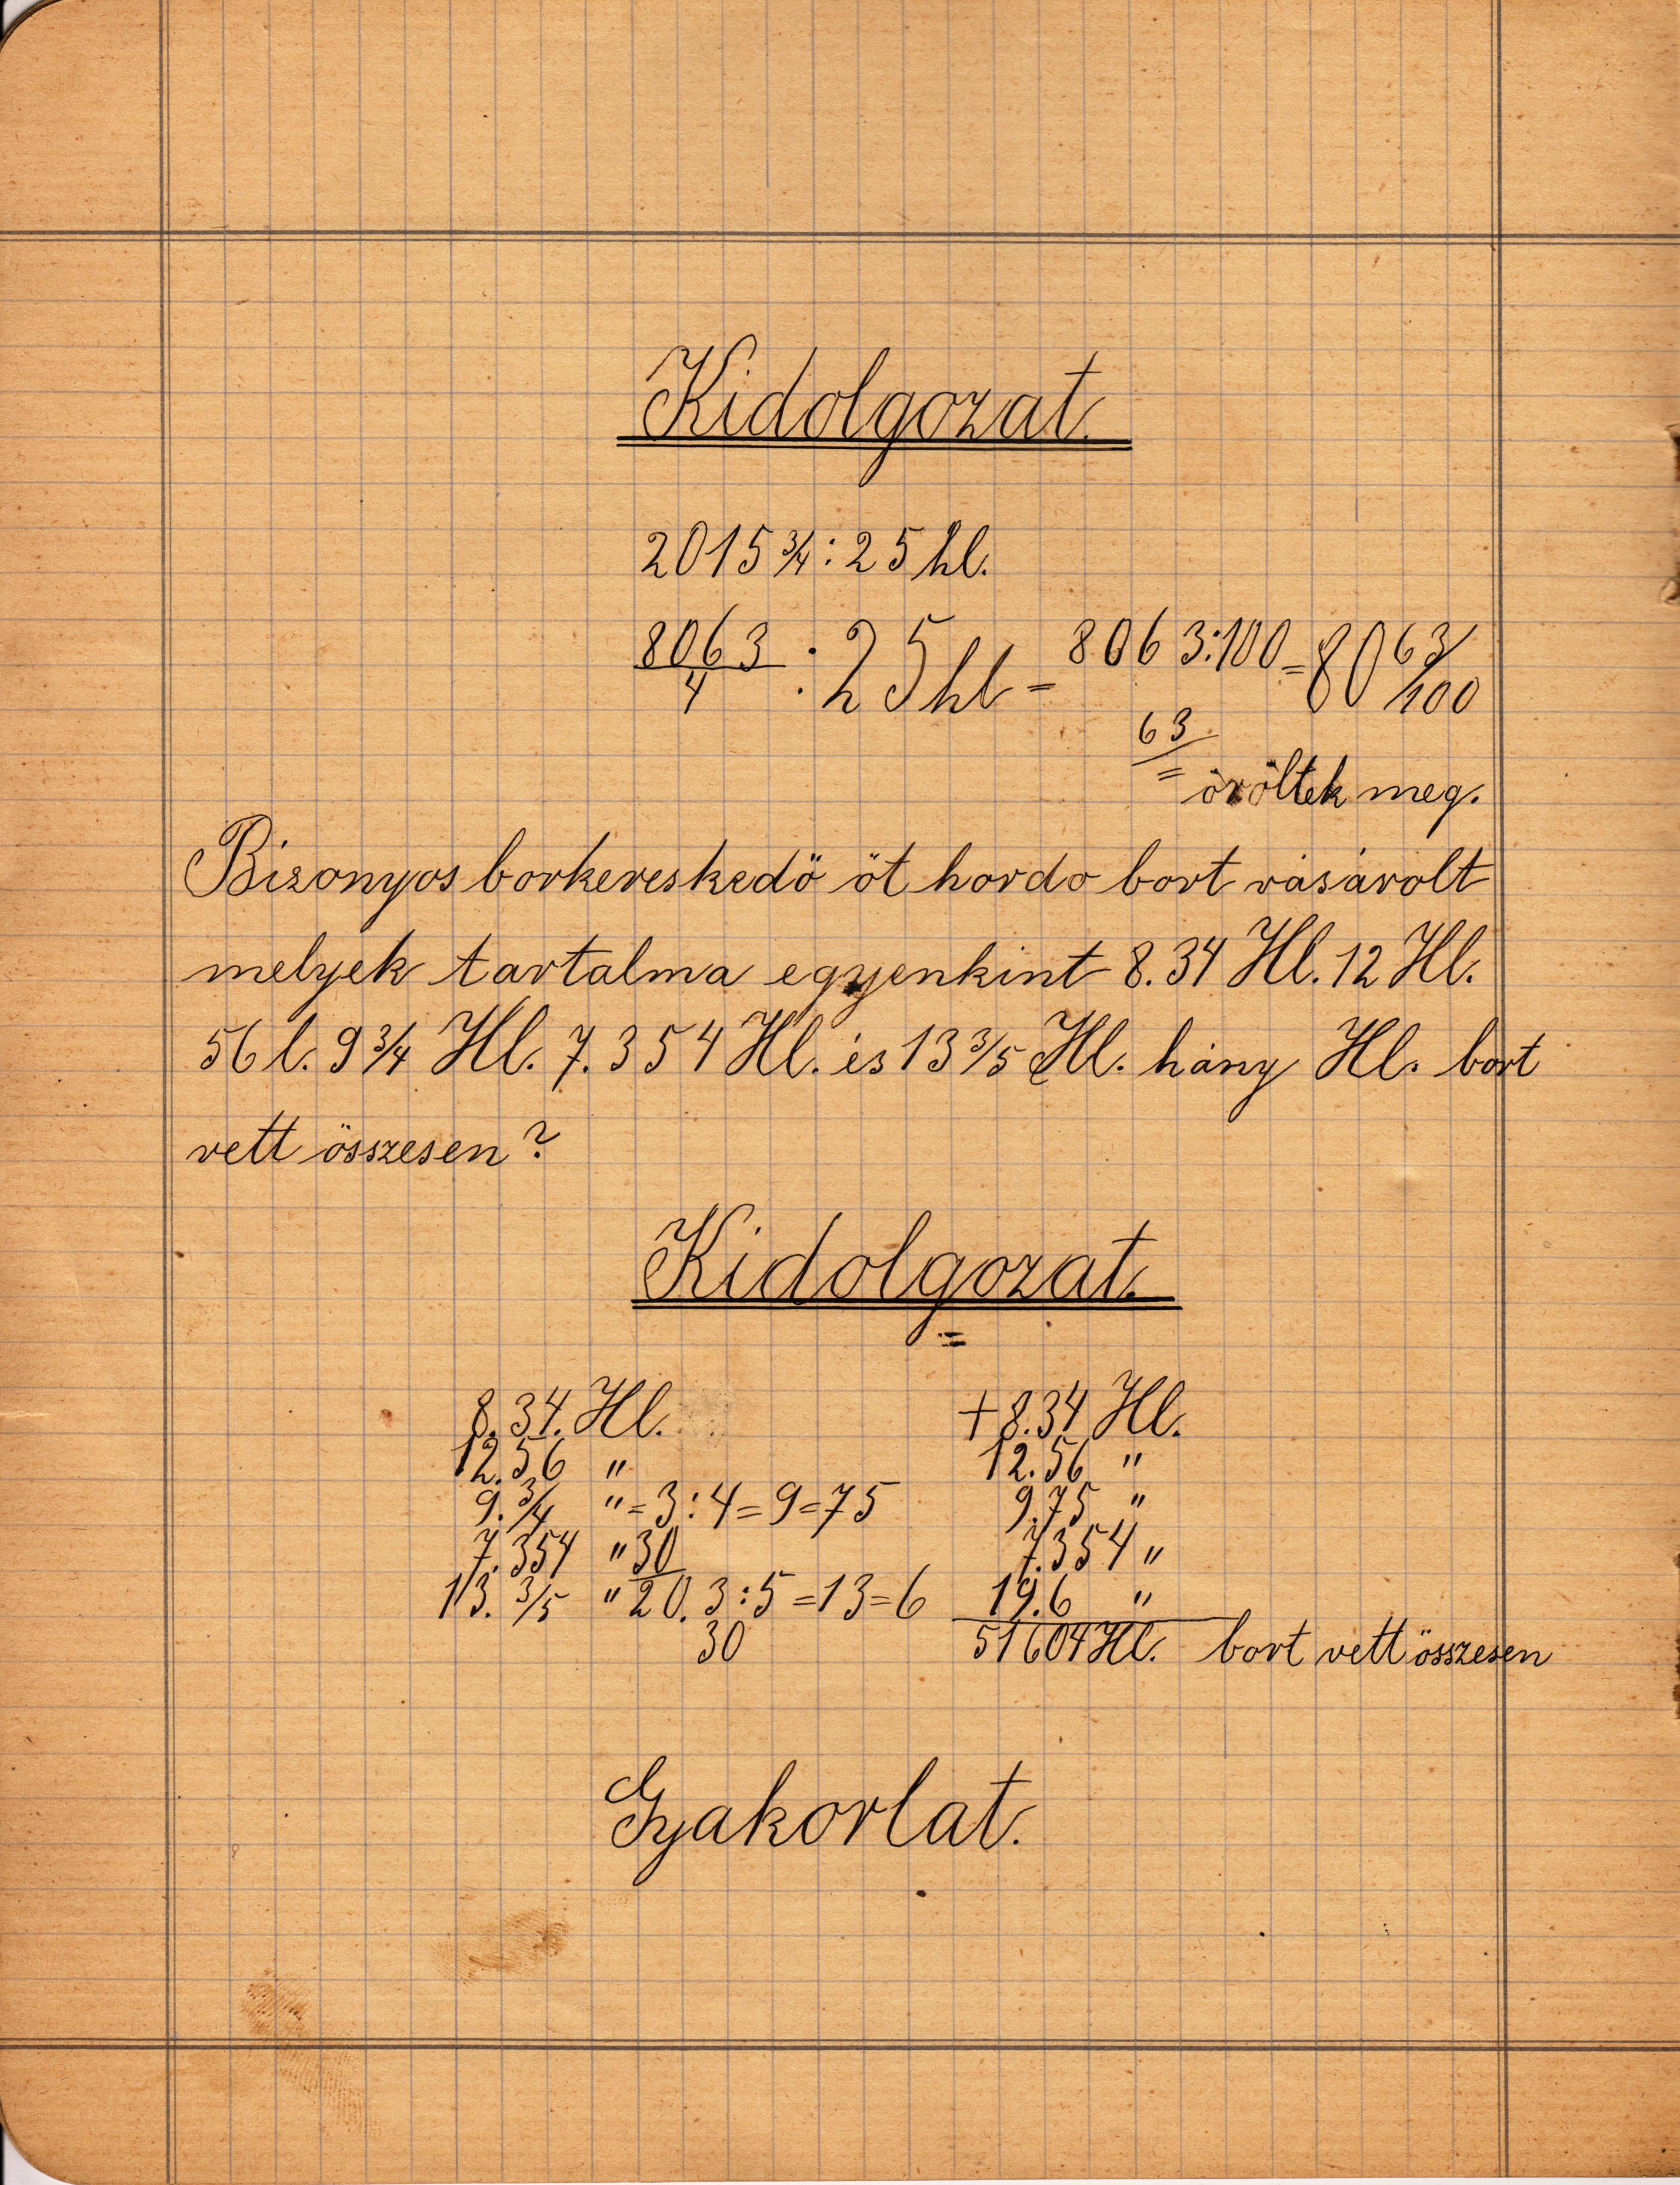 Kidolgozat.
2015 3/4 : 25 hl.
8063/4 : 25 hl = 8063:100 = 80 63/100
63
=
öröltek meg.
Bizonyos borkereskedö öt hordo bort vásárolt
melyek tartalma egyenkint 8.34 Hl. 12 Hl.
56 l. 9 3/4 Hl. 7.354 Hl. és 13 3/5 Hl. hány Hl. bort
vett összesen?
Kidolgozat.
=
8.34. Hl. +8.34 Hl.
12.56 " 12.56 "
9. 3/4 " = 3:4=9=75 9.75 "
7.354 " 30 7.354 "
13. 3/5 " 20. 3:5=13=6 19.6 "
30 51604 Hl. bort vett összesen
Gyakorlat.